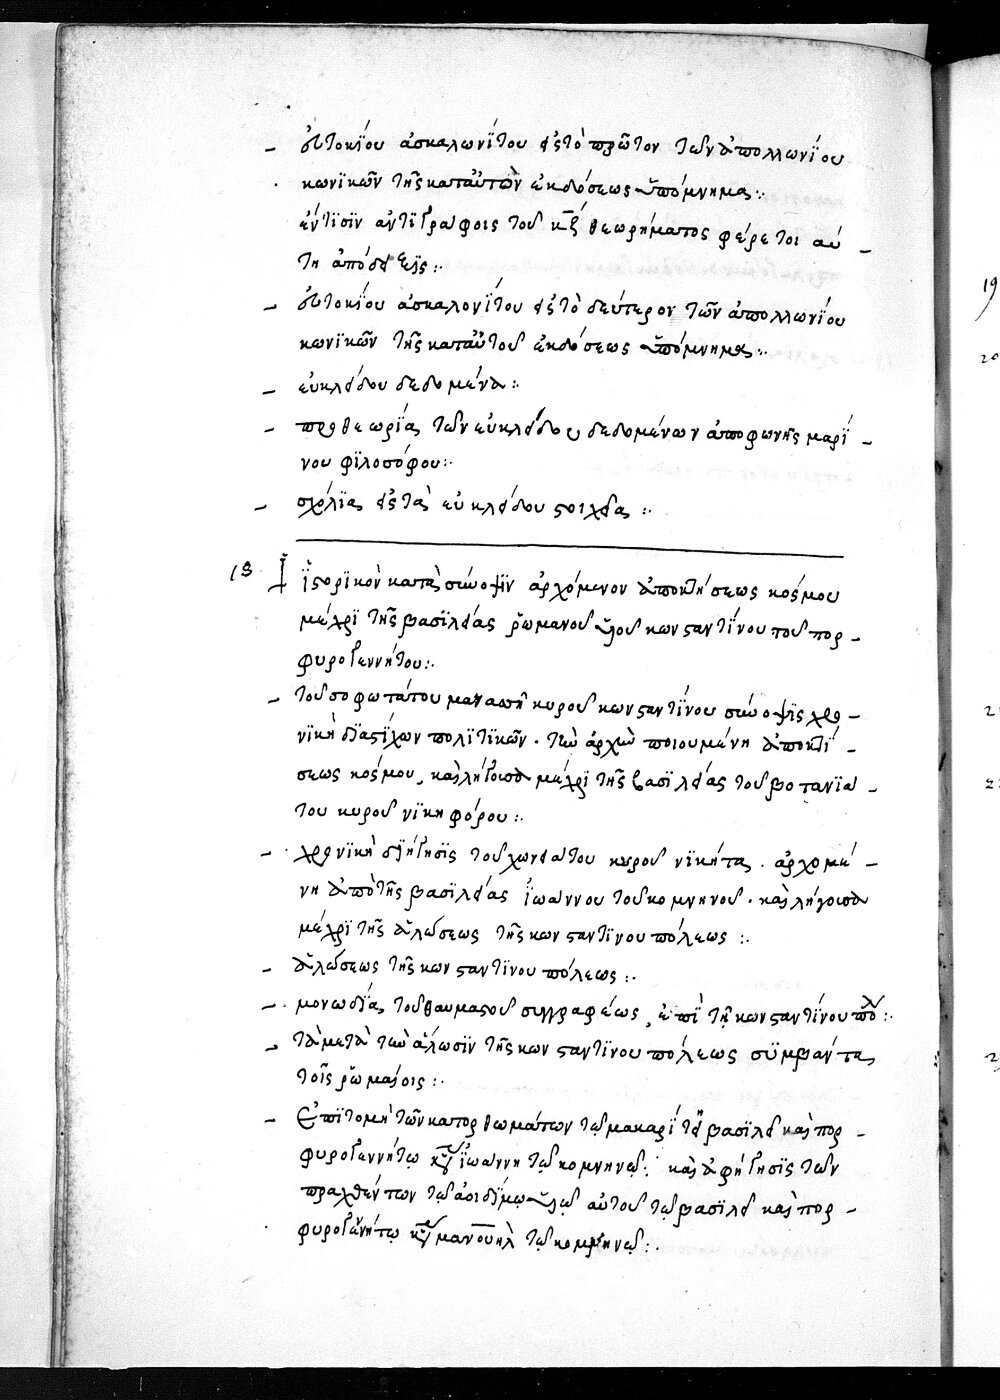 – εὐτοκίου ἀσκαλωνίτου εἰς τὸ πρῶτον τῶν ἀπολλωνίου
κωνικῶν τῆς κατ' αὐτὸν ἐκδόσεως ὑπόμνημα :·
ἐν τισὶν ἀντιγράφοις τοῦ κζ θεωρήματος φέρεται αὕ–
τη ἀπόδειξις :·
– εὐτοκίου ἀσκαλονίτου εἰς τὸ δεύτερον τῶν ἀπολλωνίου
κωνικῶν τῆς κατ' αὐτοῦ ἐκδόσεως ὑπόμνημα :·
– εὐκλείδου δεδομένα :·
– προθεωρίας τῶν εὐκλείδου δεδομένων ἀπὸ φωνῆς μαρί–
νου φιλοσόφου :·
– σχόλια εἰς τὰ εὐκλείδου στοιχεῖα :·
18 ἱστορικὸν κατὰ σύνοψιν ἀρχόμενον ἀπὸ κτήσεως κόσμου
μέχρι τῆς βασιλείας ῥωμανοῦ υἱοῦ κωνσταντίνου τοῦ πορ–
φυρογεννήτου :·
– τοῦ σοφωτάτου μανασσῆ κυροῦ κωνσταντίνου σύνοψις χρο–
νικὴ διὰ στίχων πολιτικῶν · τὴν ἀρχὴν ποιουμένη ἀπὸ κτί–
σεως κόσμου, καὶ λήγουσα μέχρι τῆς βασιλείας τοῦ βοτανιά–
του κυροῦ νικηφόρου :·
– χρονικὴ διήγησις τοῦ χωνειάτου κυροῦ νικήτα · ἀρχομέ–
νη ἀπὸ τῆς βασιλείας ἰωάννου τοῦ κομνηνοῦ · καὶ λήγουσα
μέχρι τῆς ἁλώσεως τῆς κωνσταντίνου πόλεως :·
– ἁλώσεως τῆς κωνσταντίνου πόλεως :·
– μονωδίας τοῦ θαυμαστοῦ συγγραφέως, ἐπὶ τῇ κωνσταντίνου πόλ :·
– τὰ μετὰ τὴν ἅλωσιν τῆς κωνσταντίνου πόλεως συμβάντα
τοῖς ῥωμαίοις :·
– Ἐπιτομὴ τῶν κατορθωμάτων τῷ μακαρίτῃ βασιλεῖ καὶ πορ–
φυρογεννήτῳ κυῷ ἰωάννῃ τῷ κομνηνῷ : καὶ ἀφήγησις τῶν
πραχθέντων τῷ ἀοιδίμῳ υἱῷ αὐτοῦ τῷ βασιλεῖ καὶ πορ–
φυρογενήτῳ κυῷ μανουὴλ τῷ κομνηνῷ :·
19